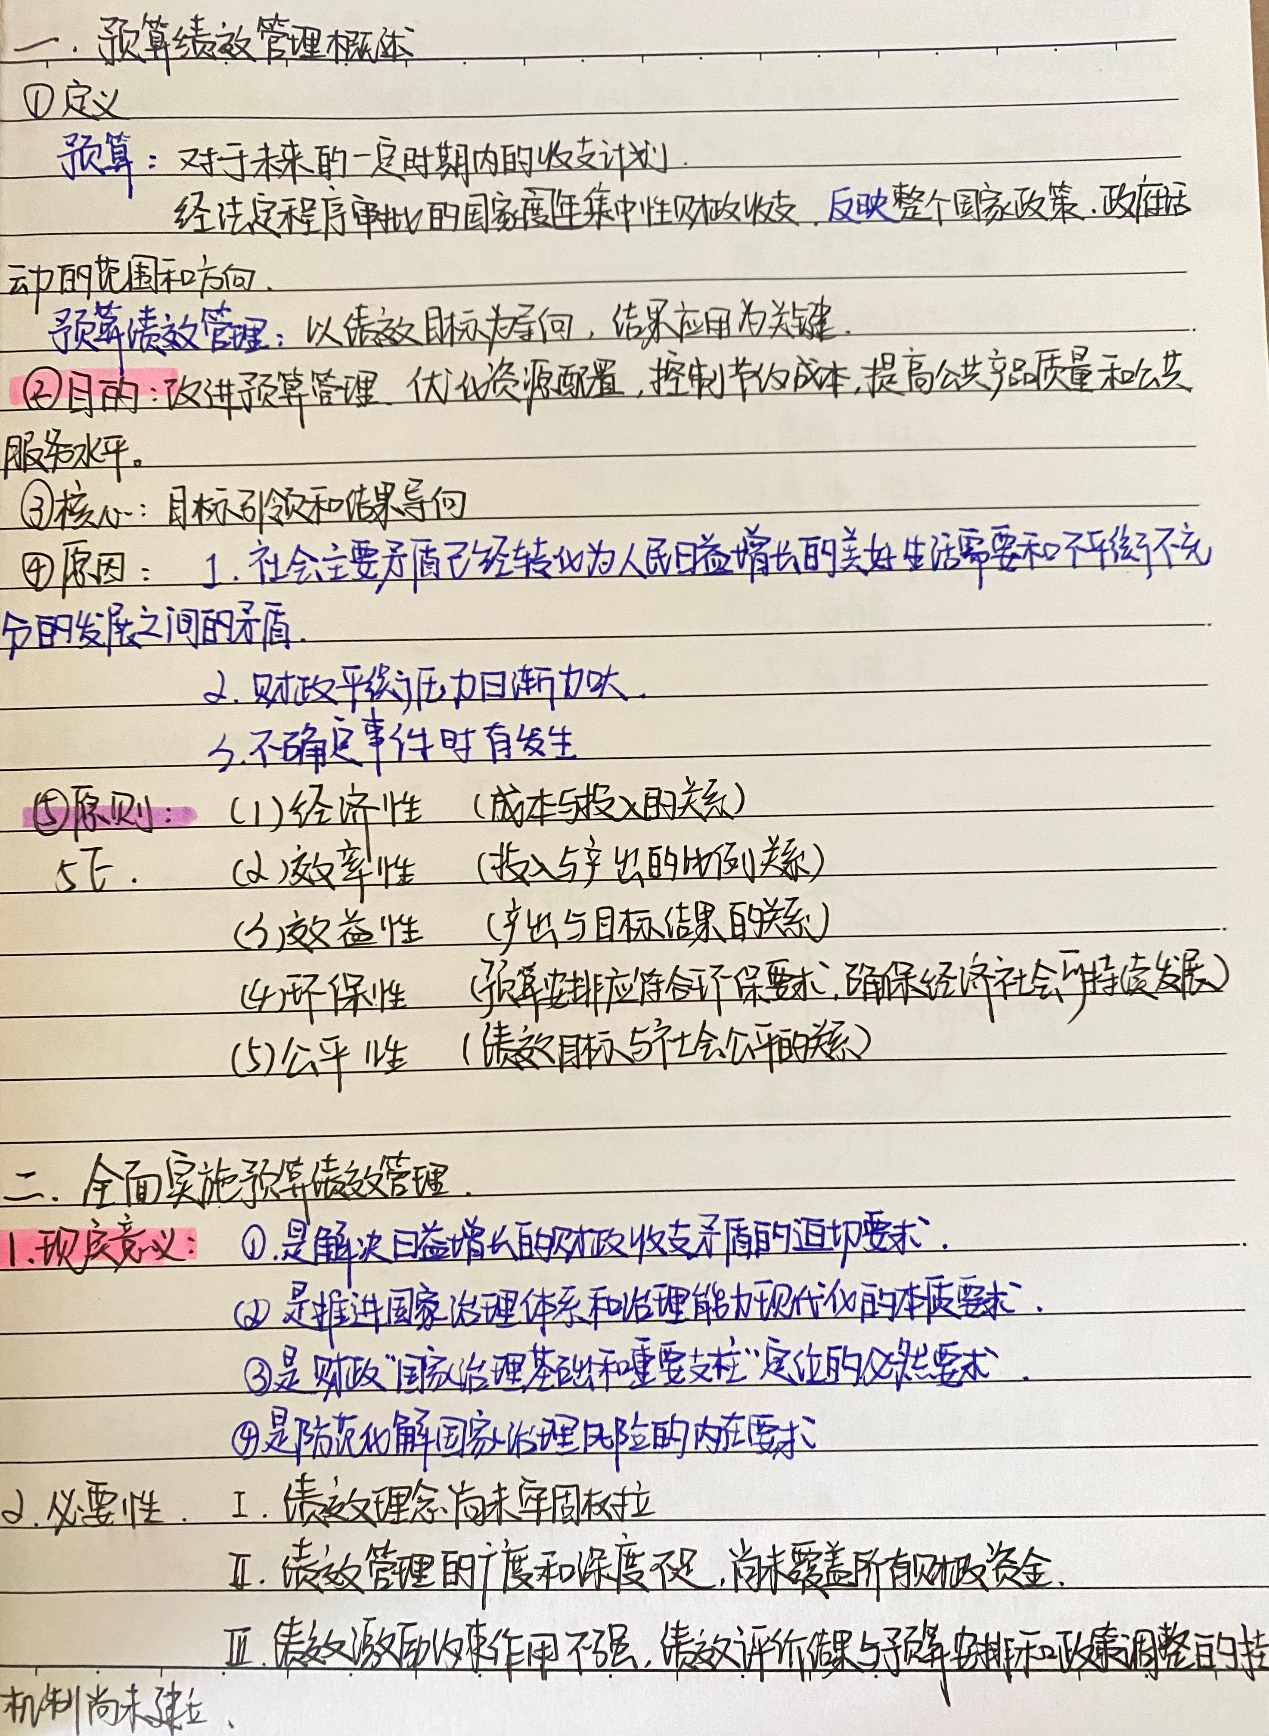 一. 预算绩效管理概述
①定义
预算: 对于未来的一定时期内的收支计划.
经法定程序审批的国家年度集中性财政收支. 反映整个国家政策. 政府活
动的范围和方向.
预算绩效管理: 以绩效目标为导向, 结果应用为关键.
②目的: 改进预算管理. 优化资源配置, 控制节约成本, 提高公共产品质量和公共
服务水平。
③核心: 目标引领和结果导向
④原因: 1. 社会主要矛盾已经转化为人民日益增长的美好生活需要和不平衡不充
分的发展之间的矛盾.
2. 财政平衡压力日渐加大.
3. 不确定事件时有发生
⑤原则: (1)经济性 (成本与投入的关系)
5E. (2)效率性 (投入与产出的比例关系)
(3)效益性 (产出与目标结果的关系)
(4)环保性 (预算安排应符合环保要求, 确保经济社会可持续发展)
(5)公平性 (绩效目标与社会公平的关系)
二. 全面实施预算绩效管理.
1.现实意义: ①.是解决日益增长的财政收支矛盾的迫切要求.
②是推进国家治理体系和治理能力现代化的本质要求.
③是财政"国家治理基础和重要支柱"定位的必然要求.
④是防范化解国家治理风险的内在要求
2.必要性. Ⅰ. 绩效理念尚未牢固树立
Ⅱ. 绩效管理的广度和深度不足, 尚未覆盖所有财政资金.
Ⅲ. 绩效激励约束作用不强, 绩效评价结果与预算安排和政策调整的挂
机制尚未建立.